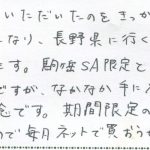 いただいたのをきっか
なり、長野県に行く
ます。駒ヶ岳SA限定と
ですが、なかなか手に入
念です。期間限定の
ので毎月ネットで買おうか